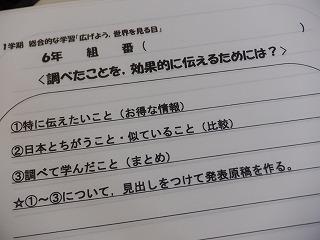 1学期 総合的な学習「広げよう,世界を見る目」
6年 組 番( )
<調べたことを,効果的に伝えるためには?>
①特に伝えたいこと(お得な情報)
②日本とちがうこと・似ていること(比較)
③調べて学んだこと(まとめ)
☆①~③について,見出しをつけて発表原稿を作る。